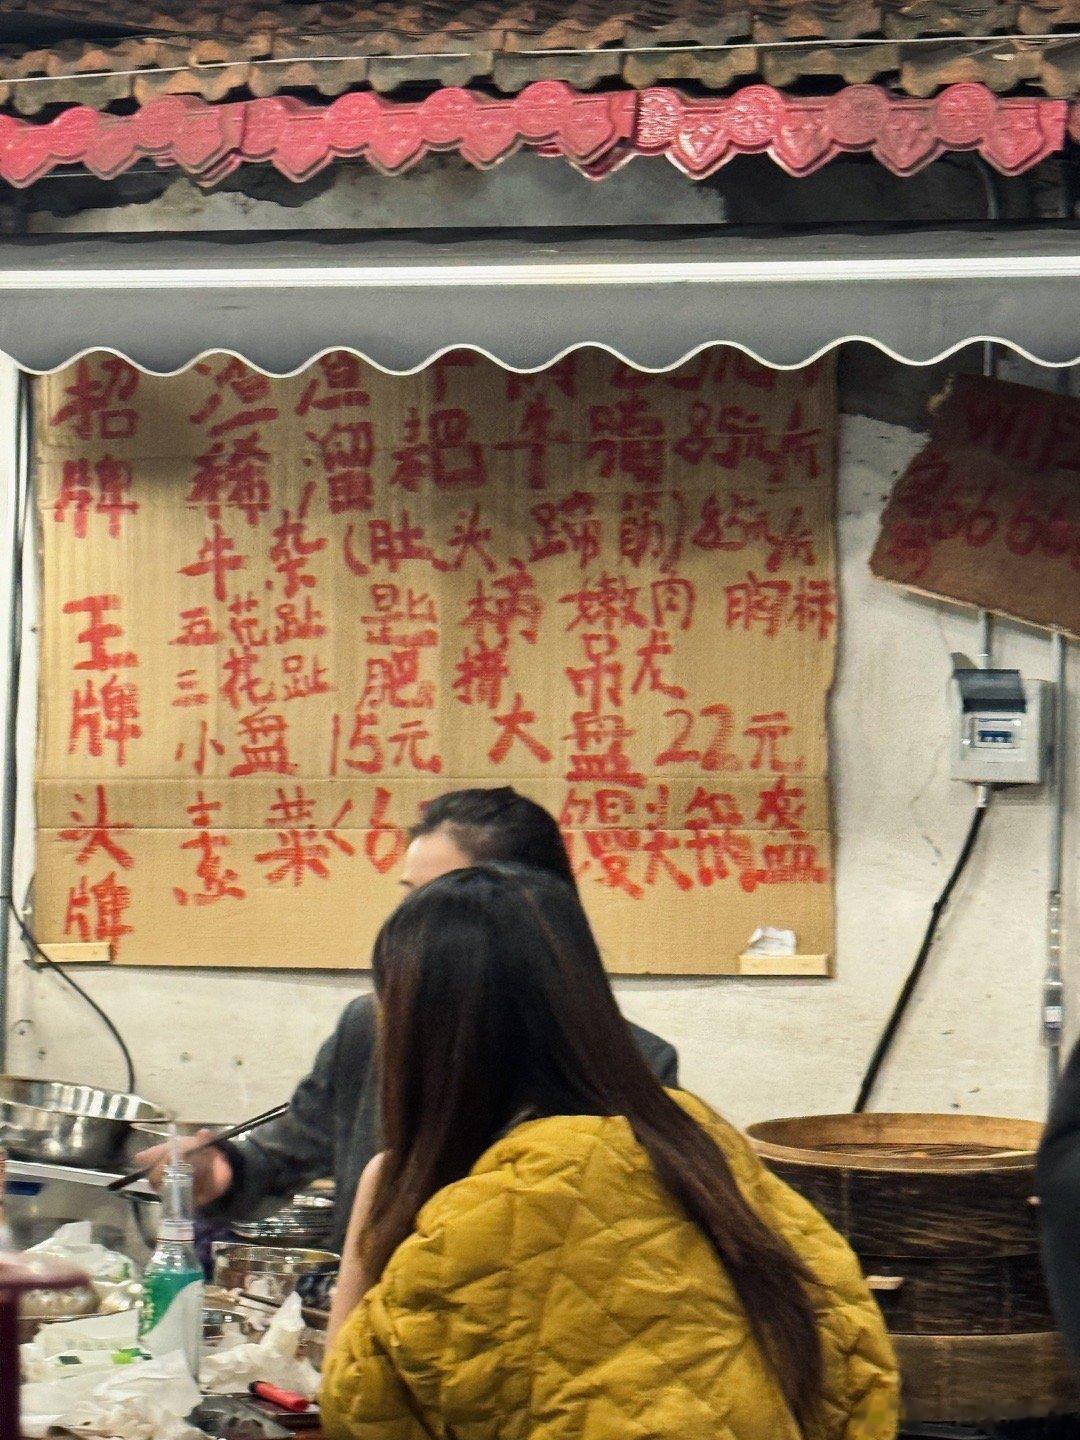 招牌
王牌
头牌
稀溜耙牛臊85元/斤
牛杂(肚头、蹄筋)85元/斤
五花趾 匙 橫 嫩肉 胸标
三花趾 肥 拼 吊龙
小盘15元 大盘22元
素菜<6 馒头锅盔
WIF
6666